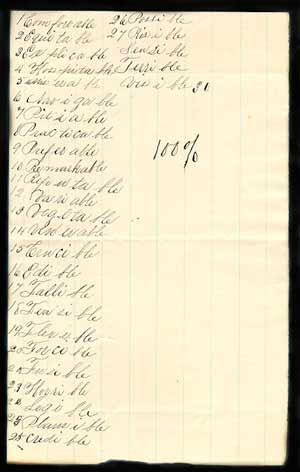 1 Comfortable
2 Equi ta ble
3 Ex pli ca ble
4 Hos pi ta ble
5 mis er a ble
6 Nav i ga ble
7 Pit i a ble
8 Practicable
9 Preferable
10 Remarkable
11 Res pec ta ble
12 Va ri able
13 Veg e ta ble
14 Ven er able
15 ble
16 Edi ble
17 Falli ble
18 Fen si ble
19 Flex i ble
20 For ci ble
21 Fu si ble
23 Horri ble
Legi ble
25 Plausi ble
25 Credi ble
26 Possi ble
27 Ris i ble
Sen si ble
Terri ble
Vis i ble 30
100%